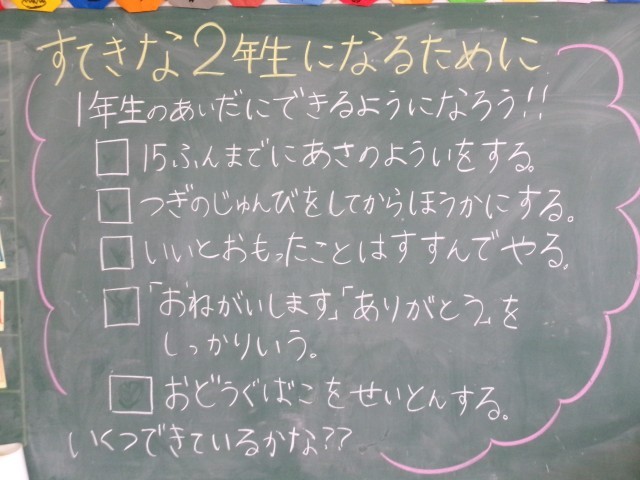 すてきな2年生になるために
1年生のあいだにできるようになろう!!
15ふんまでにあさのよういをする。
つぎのじゅんびをしてからほうかにする。
いいとおもったことはすすんでやる。
「おねがいします」「ありがとう」を
しっかりいう。
おどうぐばこをせいとんする。
いくつできているかな??